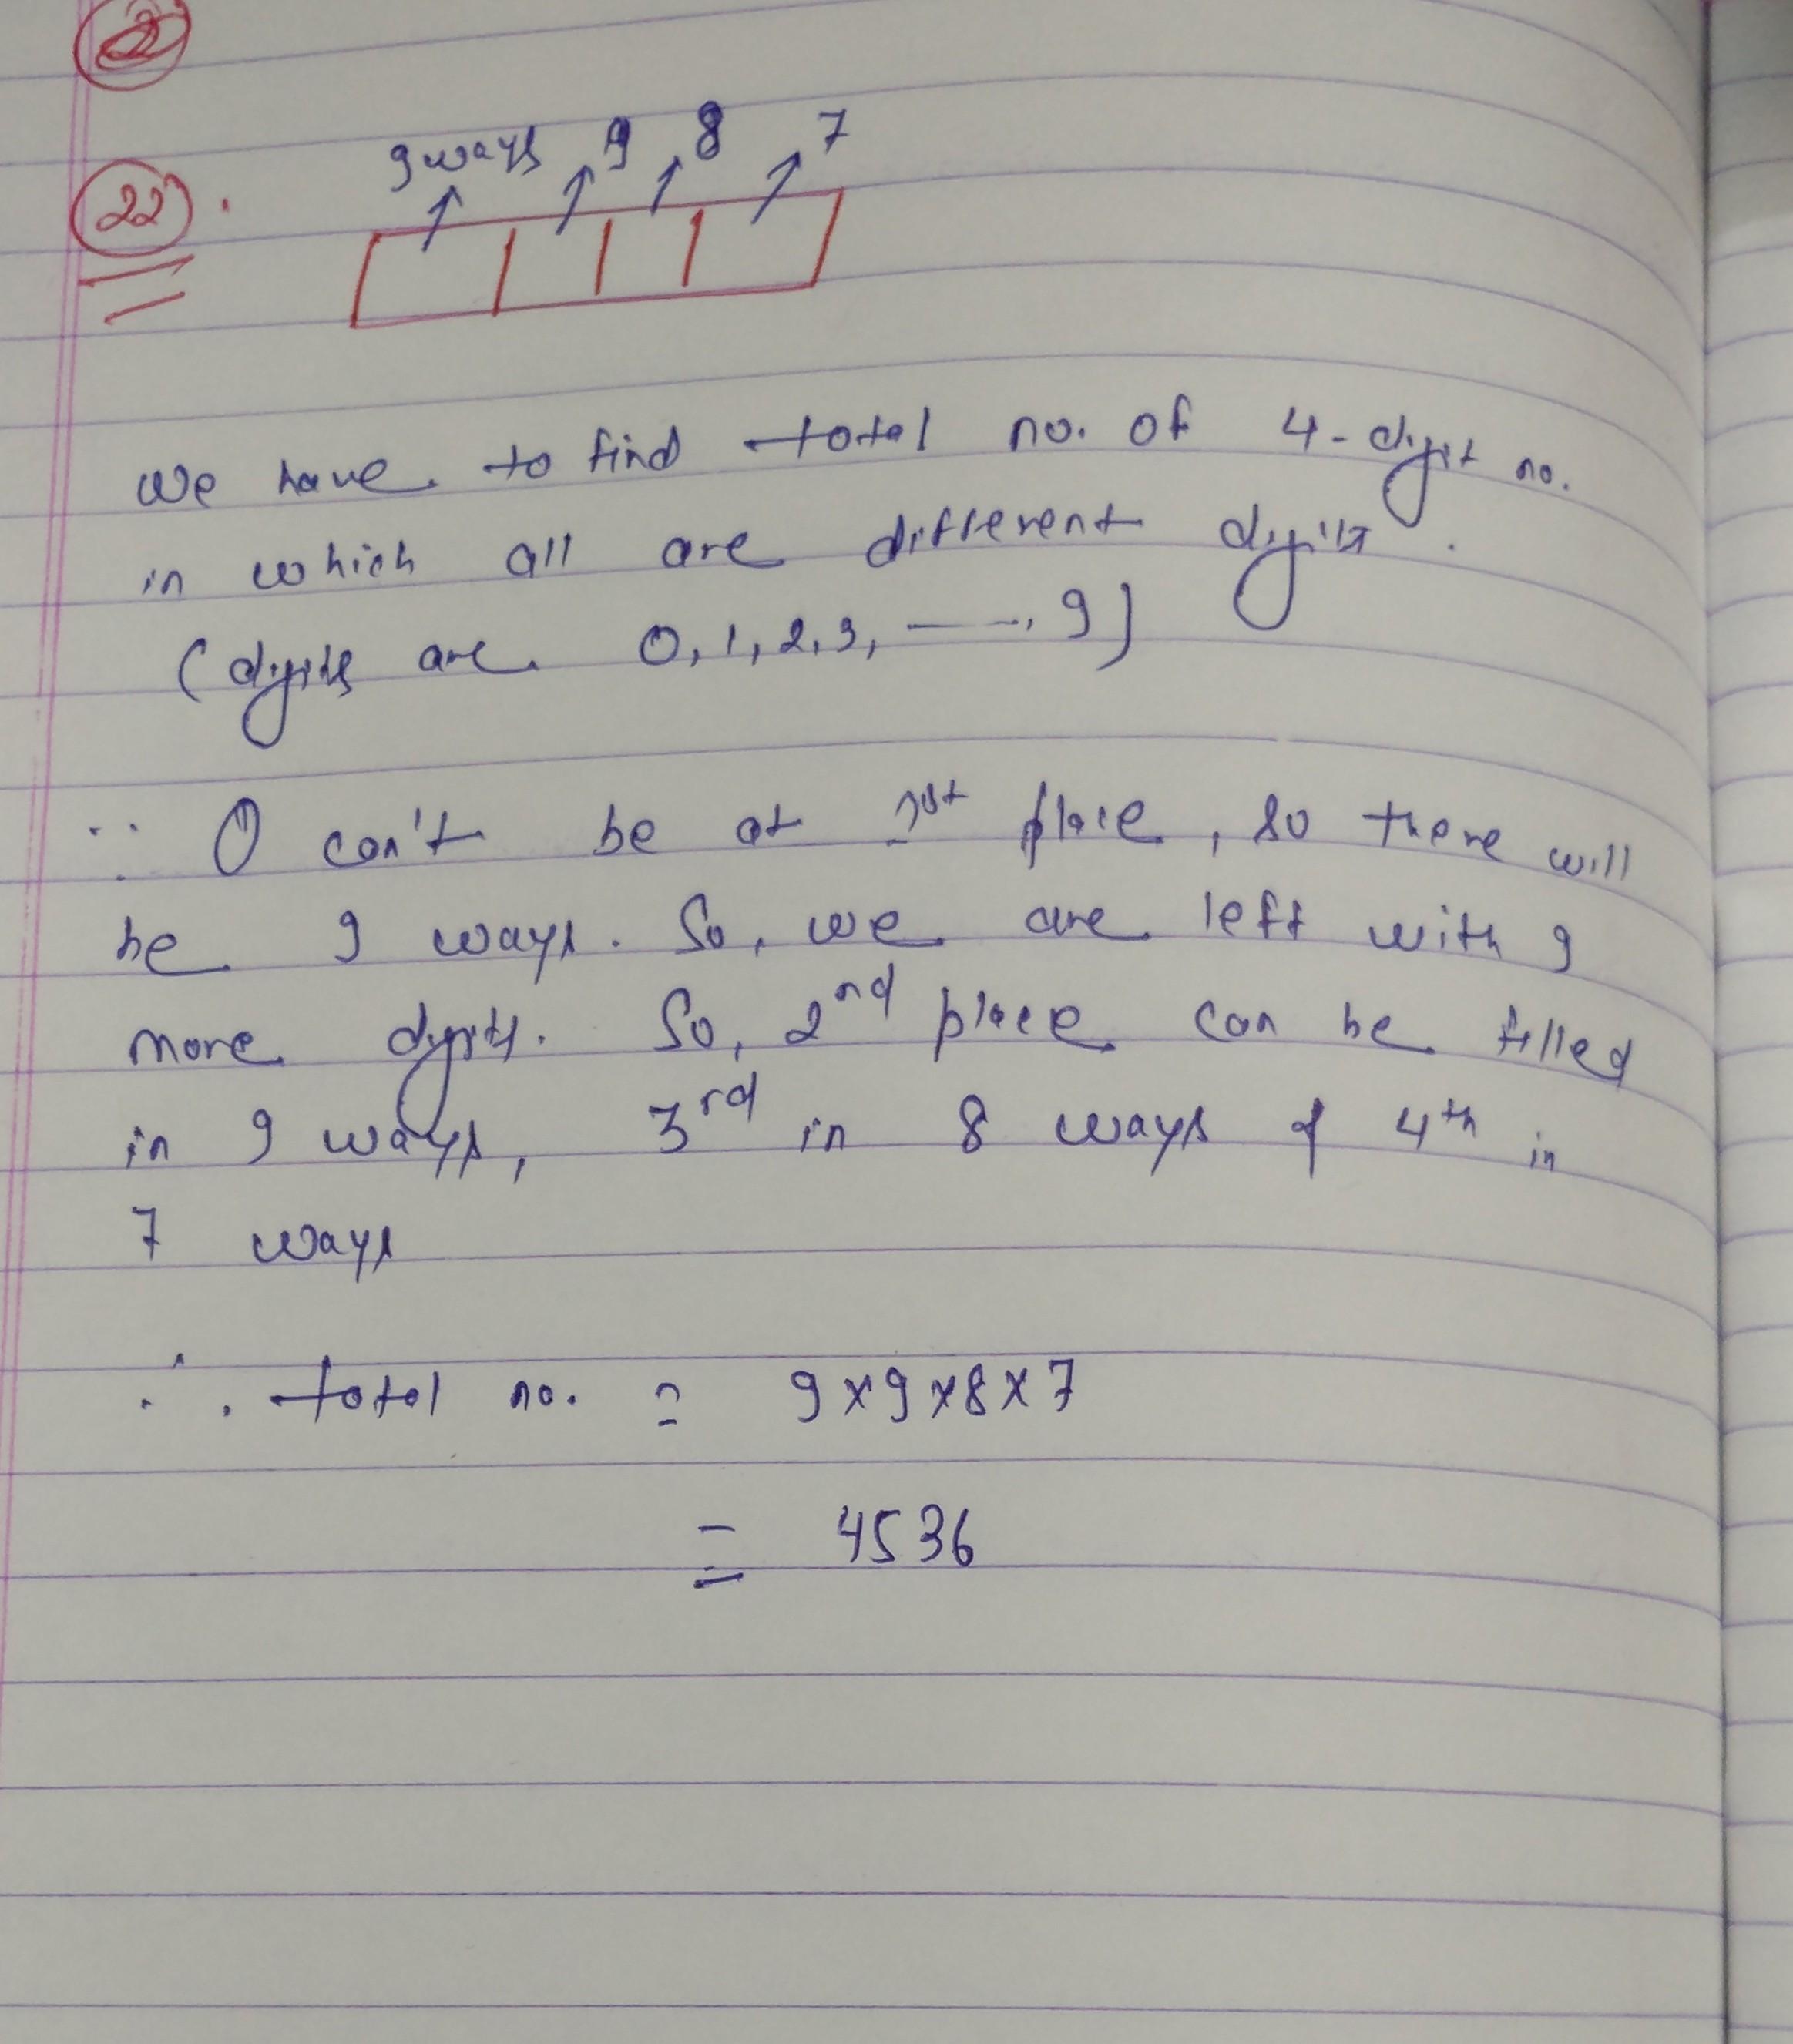 22.
9 ways 9 8 7
We have to find total no. of 4-digit no.
in which all are different digits.
(digits are 0, 1, 2, 3, ——, 9)
∵ 0 can't be at 1st place, so there will
be 9 ways. So, we are left with 9
more digits. So, 2nd place can be filled
in 9 ways, 3rd in 8 ways & 4th in
7 ways
∴ total no. = 9×9×8×7
= 4536